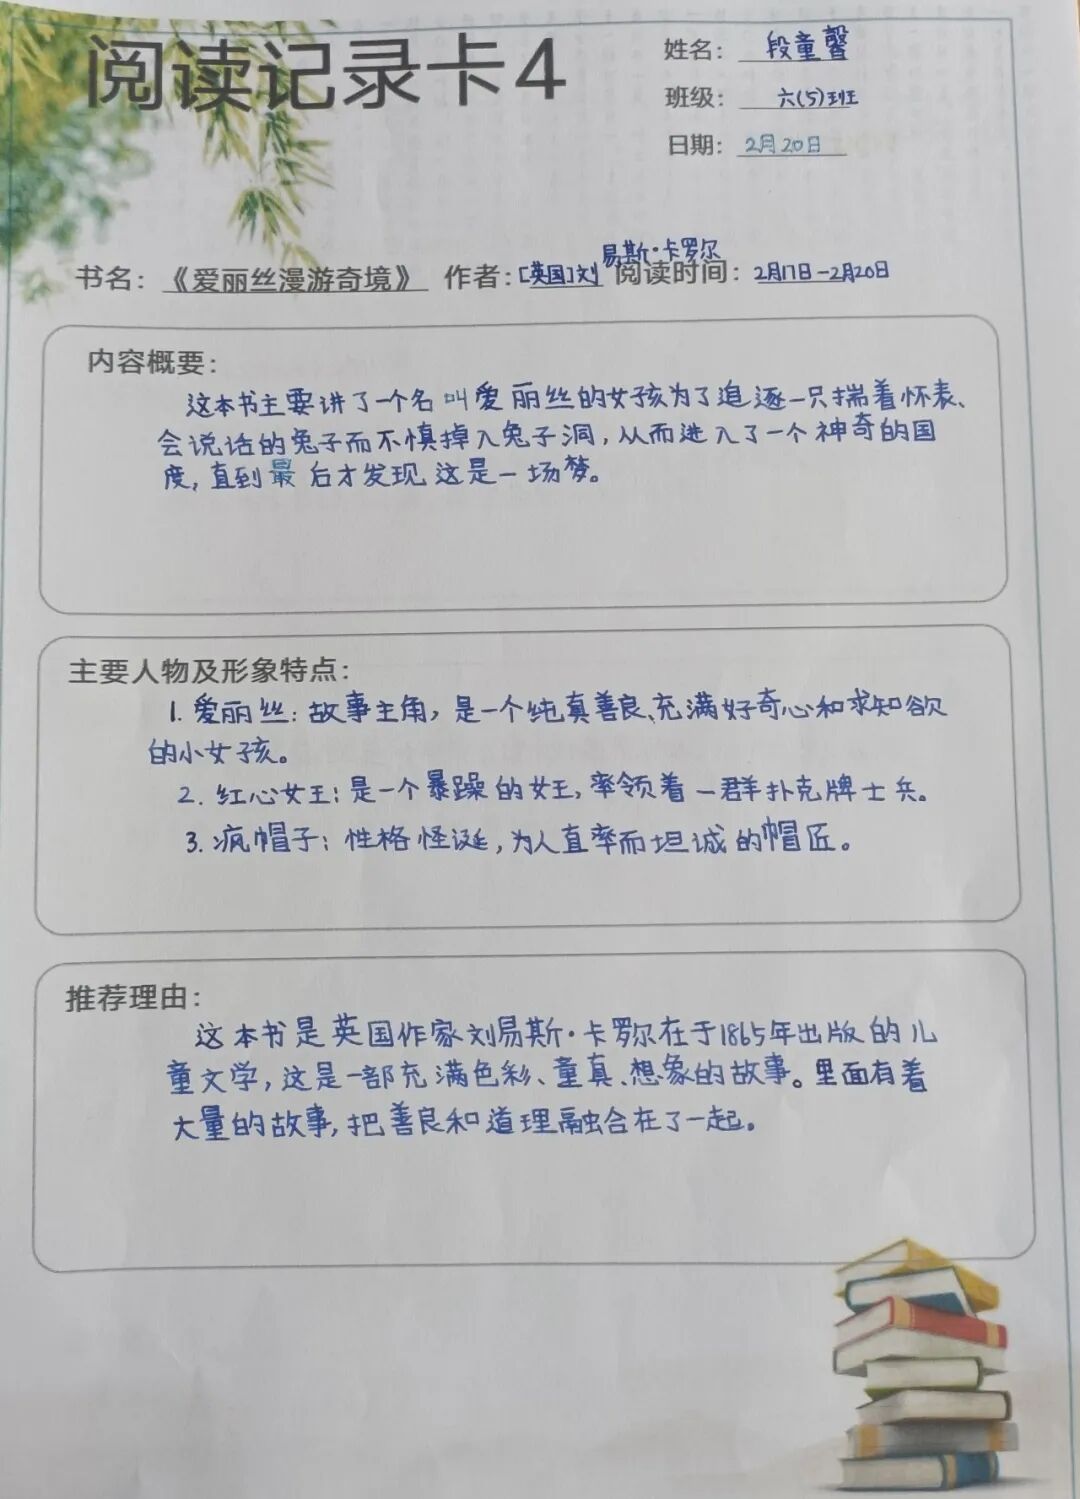 阅读记录卡4
姓名：段童馨
班级：六(5)班
日期：2月20日
易斯·卡罗尔
书名：《爱丽丝漫游奇境》 作者：[英国]刘 阅读时间：2月17日-2月20日
内容概要：
这本书主要讲了一个名叫爱丽丝的女孩为了追逐一只揣着怀表、
会说话的兔子而不慎掉入兔子洞，从而进入了一个神奇的国
度，直到最后才发现这是一场梦。
主要人物及形象特点：
1. 爱丽丝：故事主角，是一个纯真善良、充满好奇心和求知欲
的小女孩。
2. 红心女王：是一个暴躁的女王，率领着一群扑克牌士兵。
3. 疯帽子：性格怪诞，为人直率而坦诚的帽匠。
推荐理由：
这本书是英国作家刘易斯·卡罗尔在于1865年出版的儿
童文学，这是一部充满色彩、童真、想象的故事。里面有着
大量的故事，把善良和道理融合在了一起。